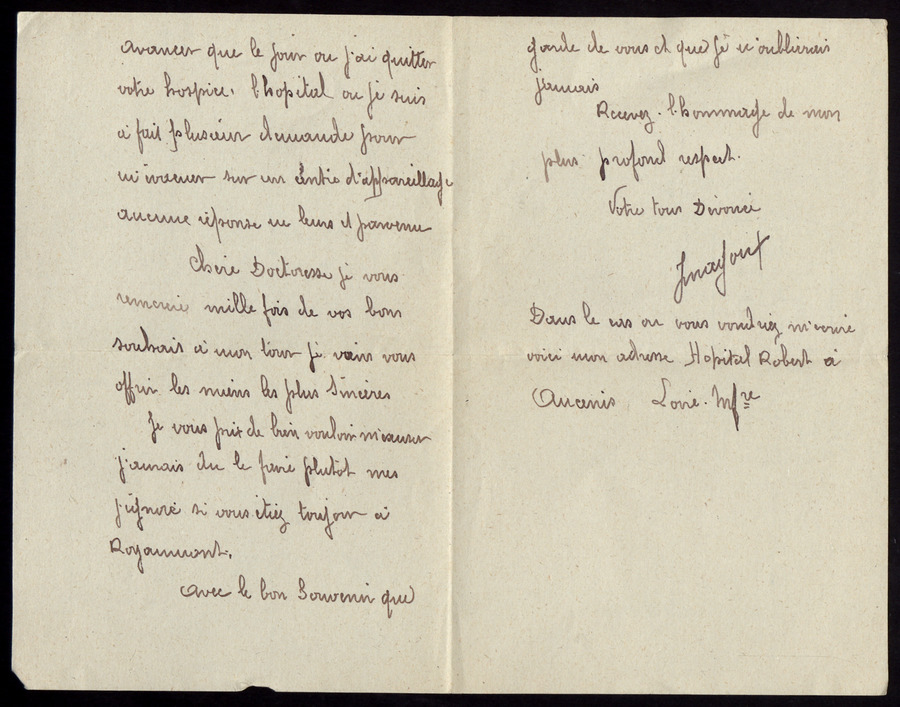 avancer que le jour ou j'ai quitter
votre hospice. l'hopital ou je suis
a fait plusieur demande pour
m'évacuer sur un centre d'appareillage
aucune réponse ne leurs et parvenu
Chere Doctoresse je vous
remercie mille fois de vos bons
souhait a mon tour je vien vous
offrir les miens les plus Sincères
Je vous prix de bien vouloir m'excuser
j'aurais du le faire plutôt mes
j'ignore si vous étiez toujour a
Royaumont.
avec le bon Souvenir que
garde de vous et que je n'oublierais
jamais
Recevez l'hommage de mon
plus profond respect.
Votre tous Dévoué
Dans le cas ou vous voudriez m'écrire
voici mon adresse Hopital Robert a
Ancenis Loire. Infre